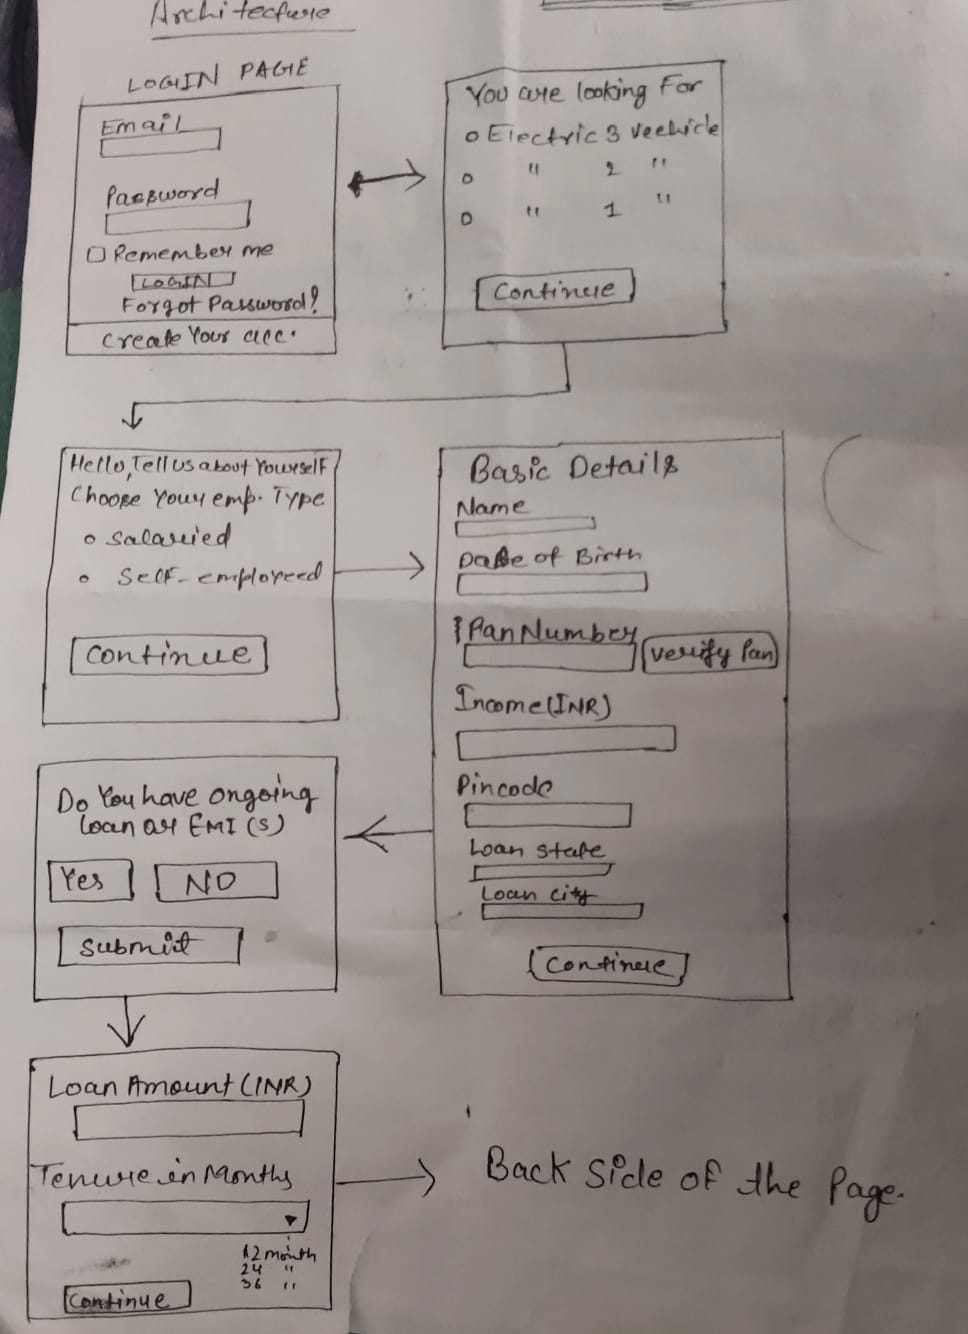 Architecture
LOGIN PAGE
Email
Password
Remember me
LOGIN
Forgot Password?
Create Your acc.
You are looking For
Electric 3 Veehicle
" 2 "
" 1 "
Continue
Hello, Tell us about Yourself
Choose Your emp. Type
Salaried
Self-employeed
Continue
Basic Details
Name
Date of Birth
Pan Number
Verify Pan
Income (INR)
Pincode
Loan state
Loan city
Continue
Do You have ongoing
loan or EMI (s)
Yes
NO
Submit
Loan Amount (INR)
Tenure in Months
12 month
24 "
36 "
Continue
Back Side of the Page.